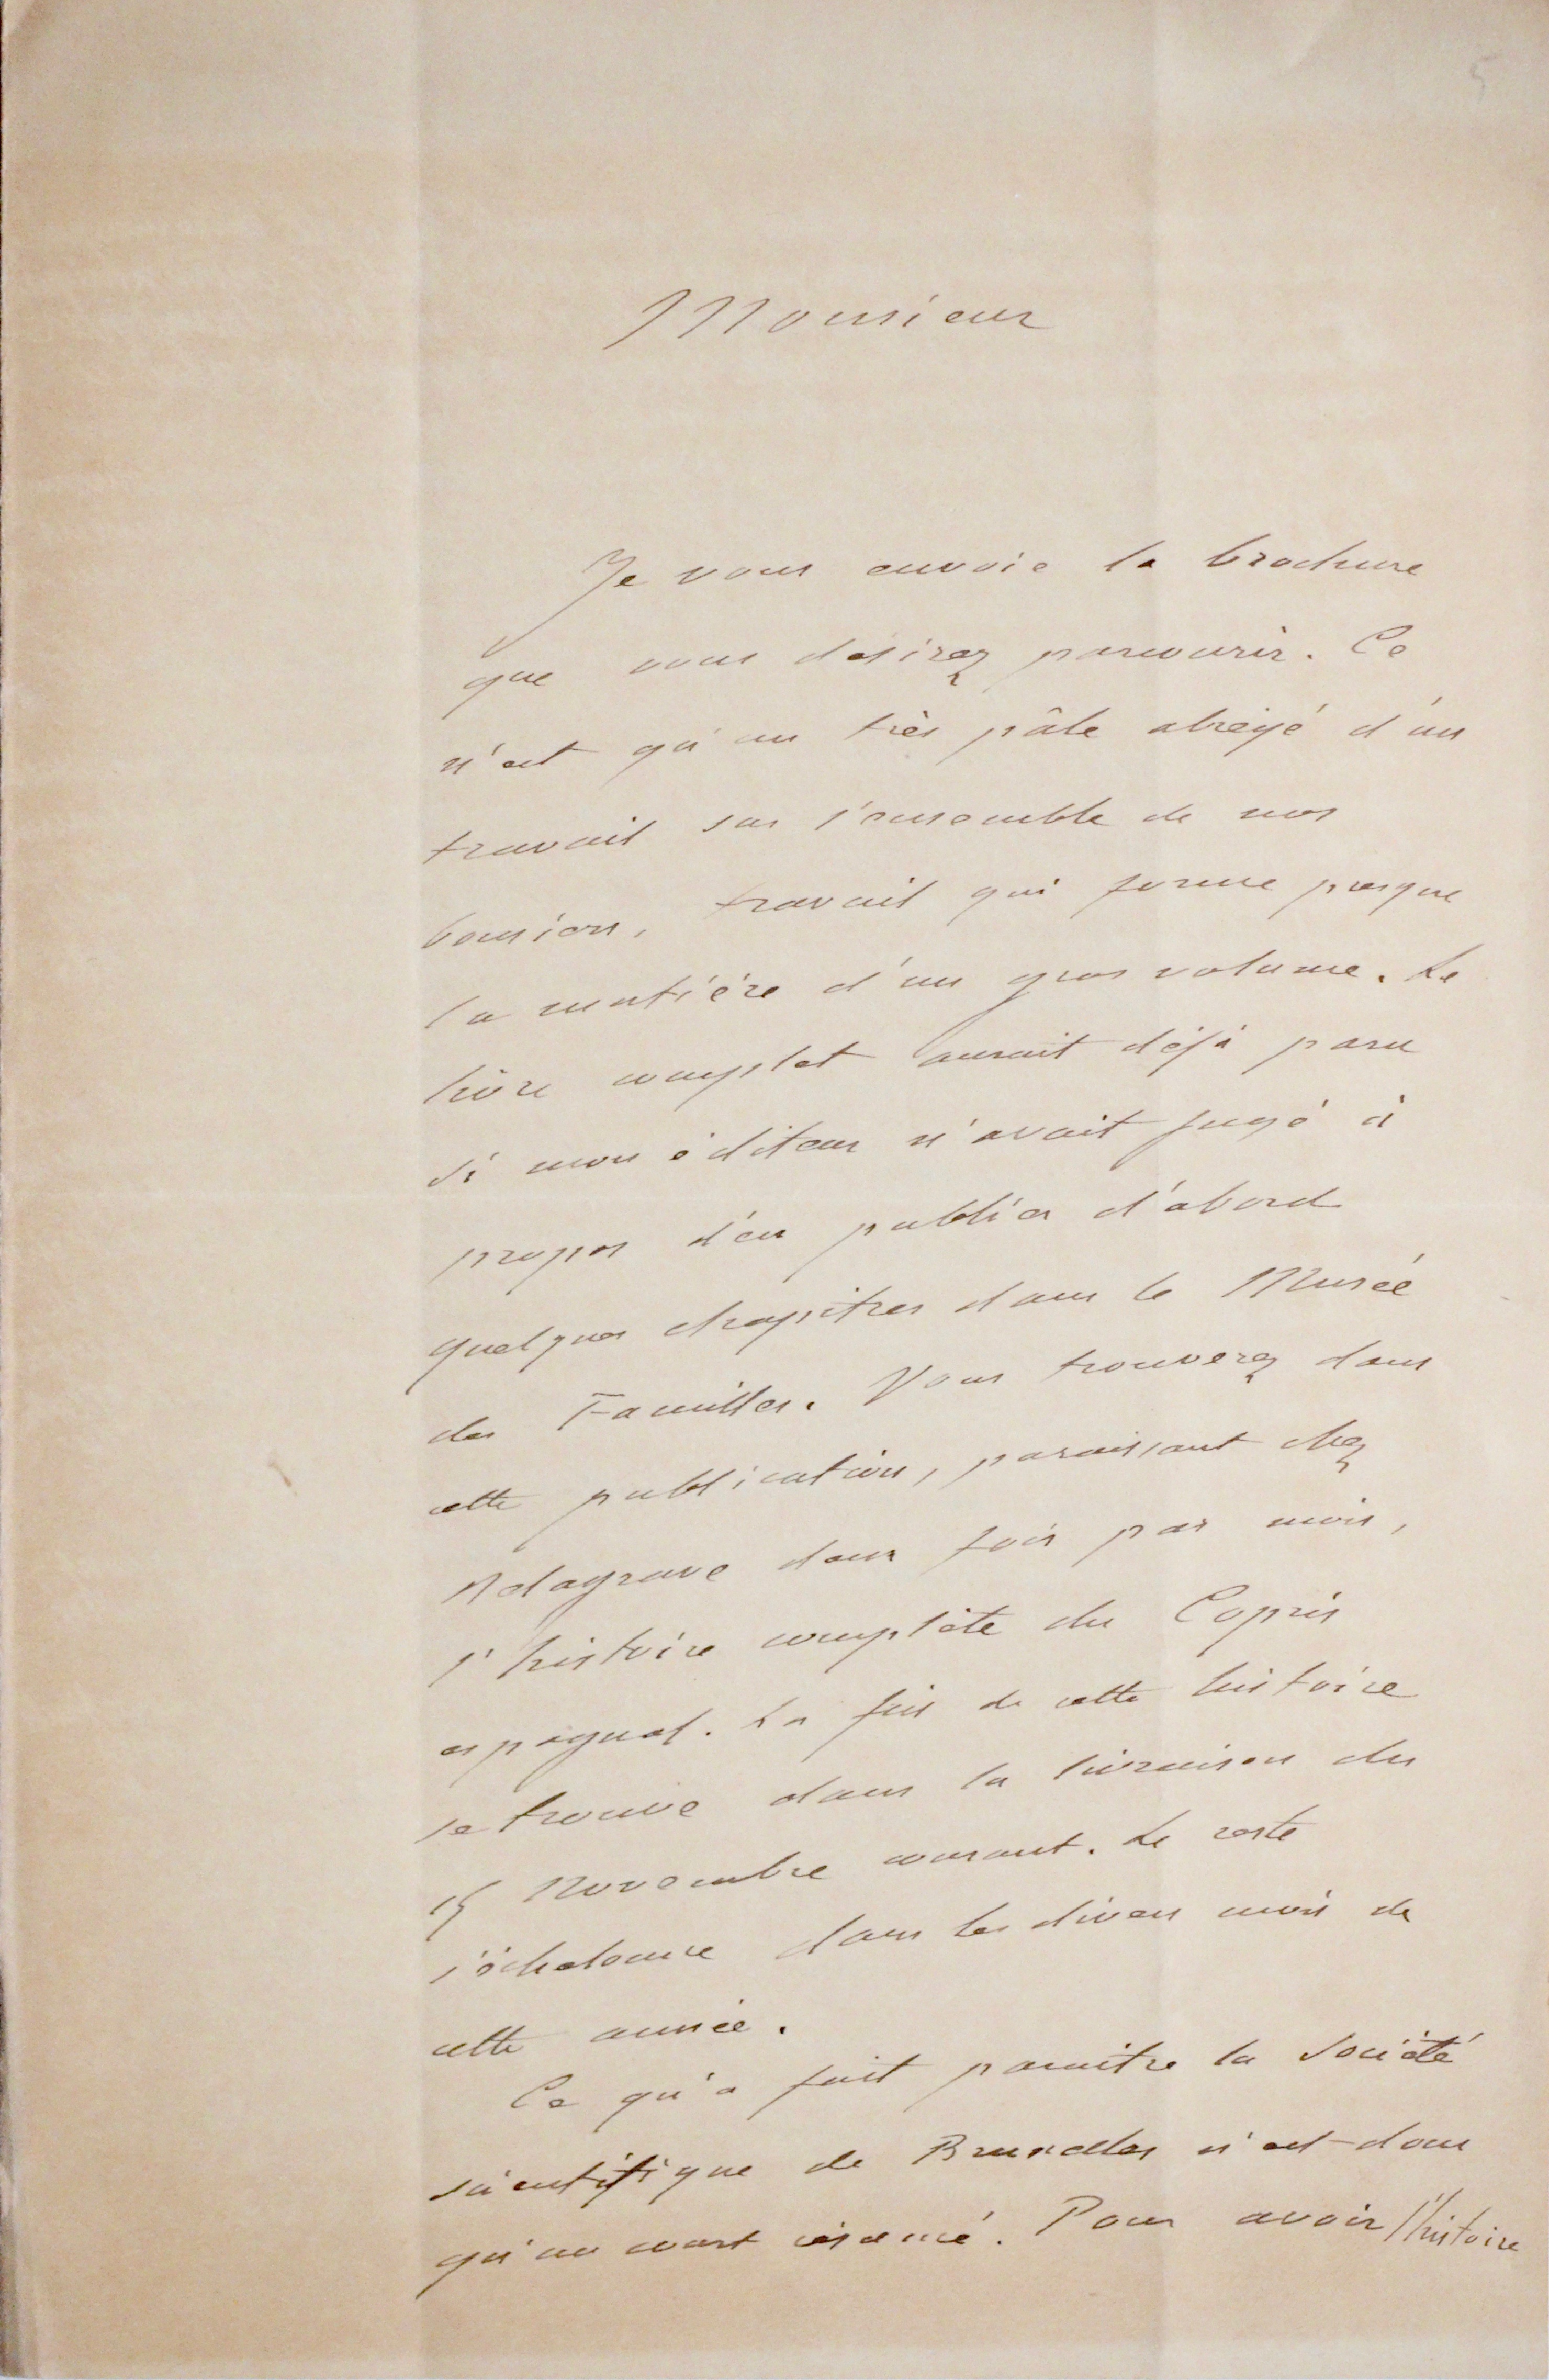 5
Monsieur
Je vous envoie la brochure
que vous desirez parcourir. Ce
n'est qu'un très pâle abrégé d'un
travail sur l'ensemble de nos
bousiers, travail qui forme presque
la matière d'un gros volume. Le
livre complet aurait déjà paru
si mon éditeur n'avait jugé à
propos d'en publier d'abord
quelques chapitres dans le Musée
des Familles. Vous trouverez dans
cette publication, paraissant chez
Delagrave deux fois par mois,
l'histoire complète du Copris
espagnol. La fin de cette histoire
se trouve dans la livraison du
15 Novembre courant. Le reste
s'échelonne dans les divers mois de
cette année.
Ce qu'a fait paraître la Société
scientifique de Bruxelles n'est donc
qu'un court résumé. Pour avoir l'histoire